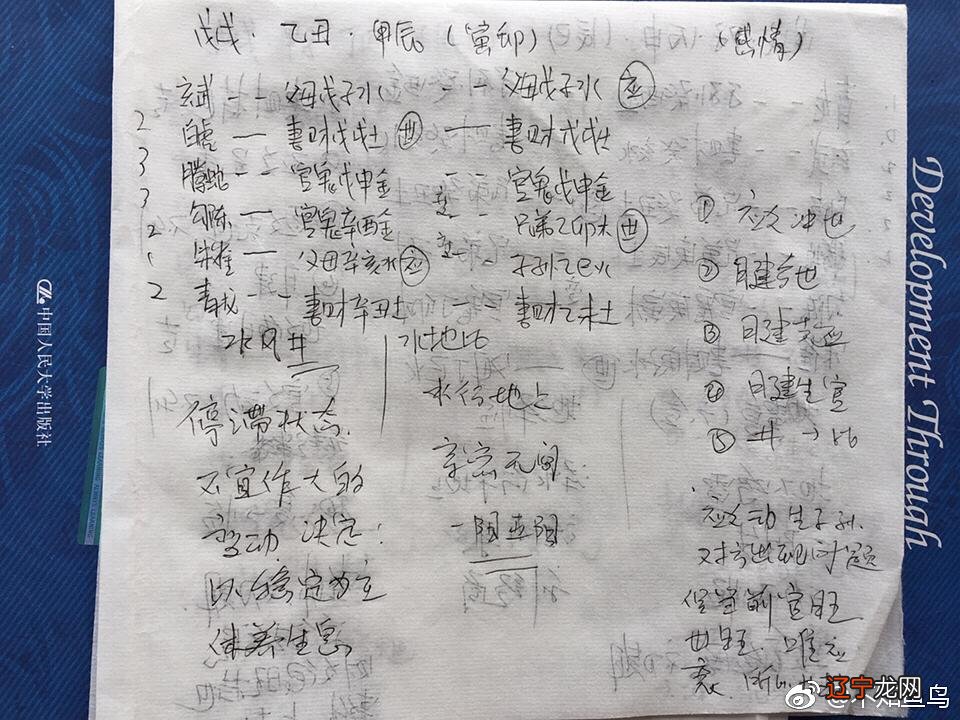 戊戌·乙丑·甲辰(寅卯) (感情)
玄武 -- 父母戊子水 -- 父母戊子水 应
2 白虎 — 妻财戊戌土 世 — 妻财戊戌土
3 腾蛇 -- 官鬼戊申金 -- 官鬼戊申金
3 勾陈 — 官鬼辛酉金 -- 兄弟乙卯木 世
2 朱雀 — 父母辛亥水 应 -- 子孙乙巳火
1
2 青龙 -- 妻财辛丑土 妻财乙未土
水风井 水地比
停滞状态.
不宜作大的
变动 决定:
以稳定为主
休养生息
水行地上
亲密无间
① 应爻冲世
② 日建合世
③ 日建克应
④ 日建生官
⑤ 井→比
应爻动生子孙.
对方出现问题
官旺
世旺. 唯应
衰.
Development Through
中国人民大学出版社
辽宁龙网
@不知鱼鸟